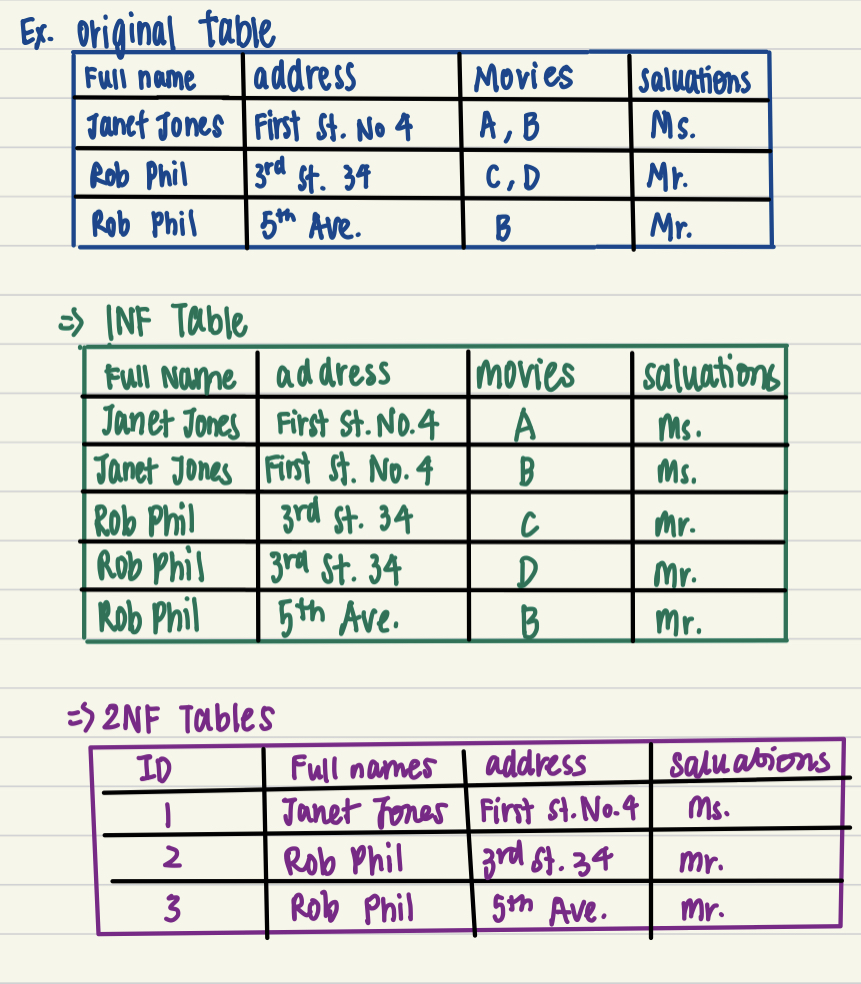 Ex. original table
Full name address Movies saluations
Janet Jones First St. No 4 A, B Ms.
Rob Phil 3rd st. 34 C, D Mr.
Rob Phil 5th Ave. B Mr.
=> 1NF Table
Full Name address movies saluations
Janet Jones First St. No. 4 A Ms.
Janet Jones First St. No. 4 B Ms.
Rob Phil 3rd St. 34 C Mr.
Rob Phil 3rd St. 34 D Mr.
Rob Phil 5th Ave. B Mr.
=> 2NF Tables
ID Full names address saluations
1 Janet Jones First St. No. 4 Ms.
2 Rob Phil 3rd St. 34 Mr.
3 Rob Phil 5th Ave. Mr.